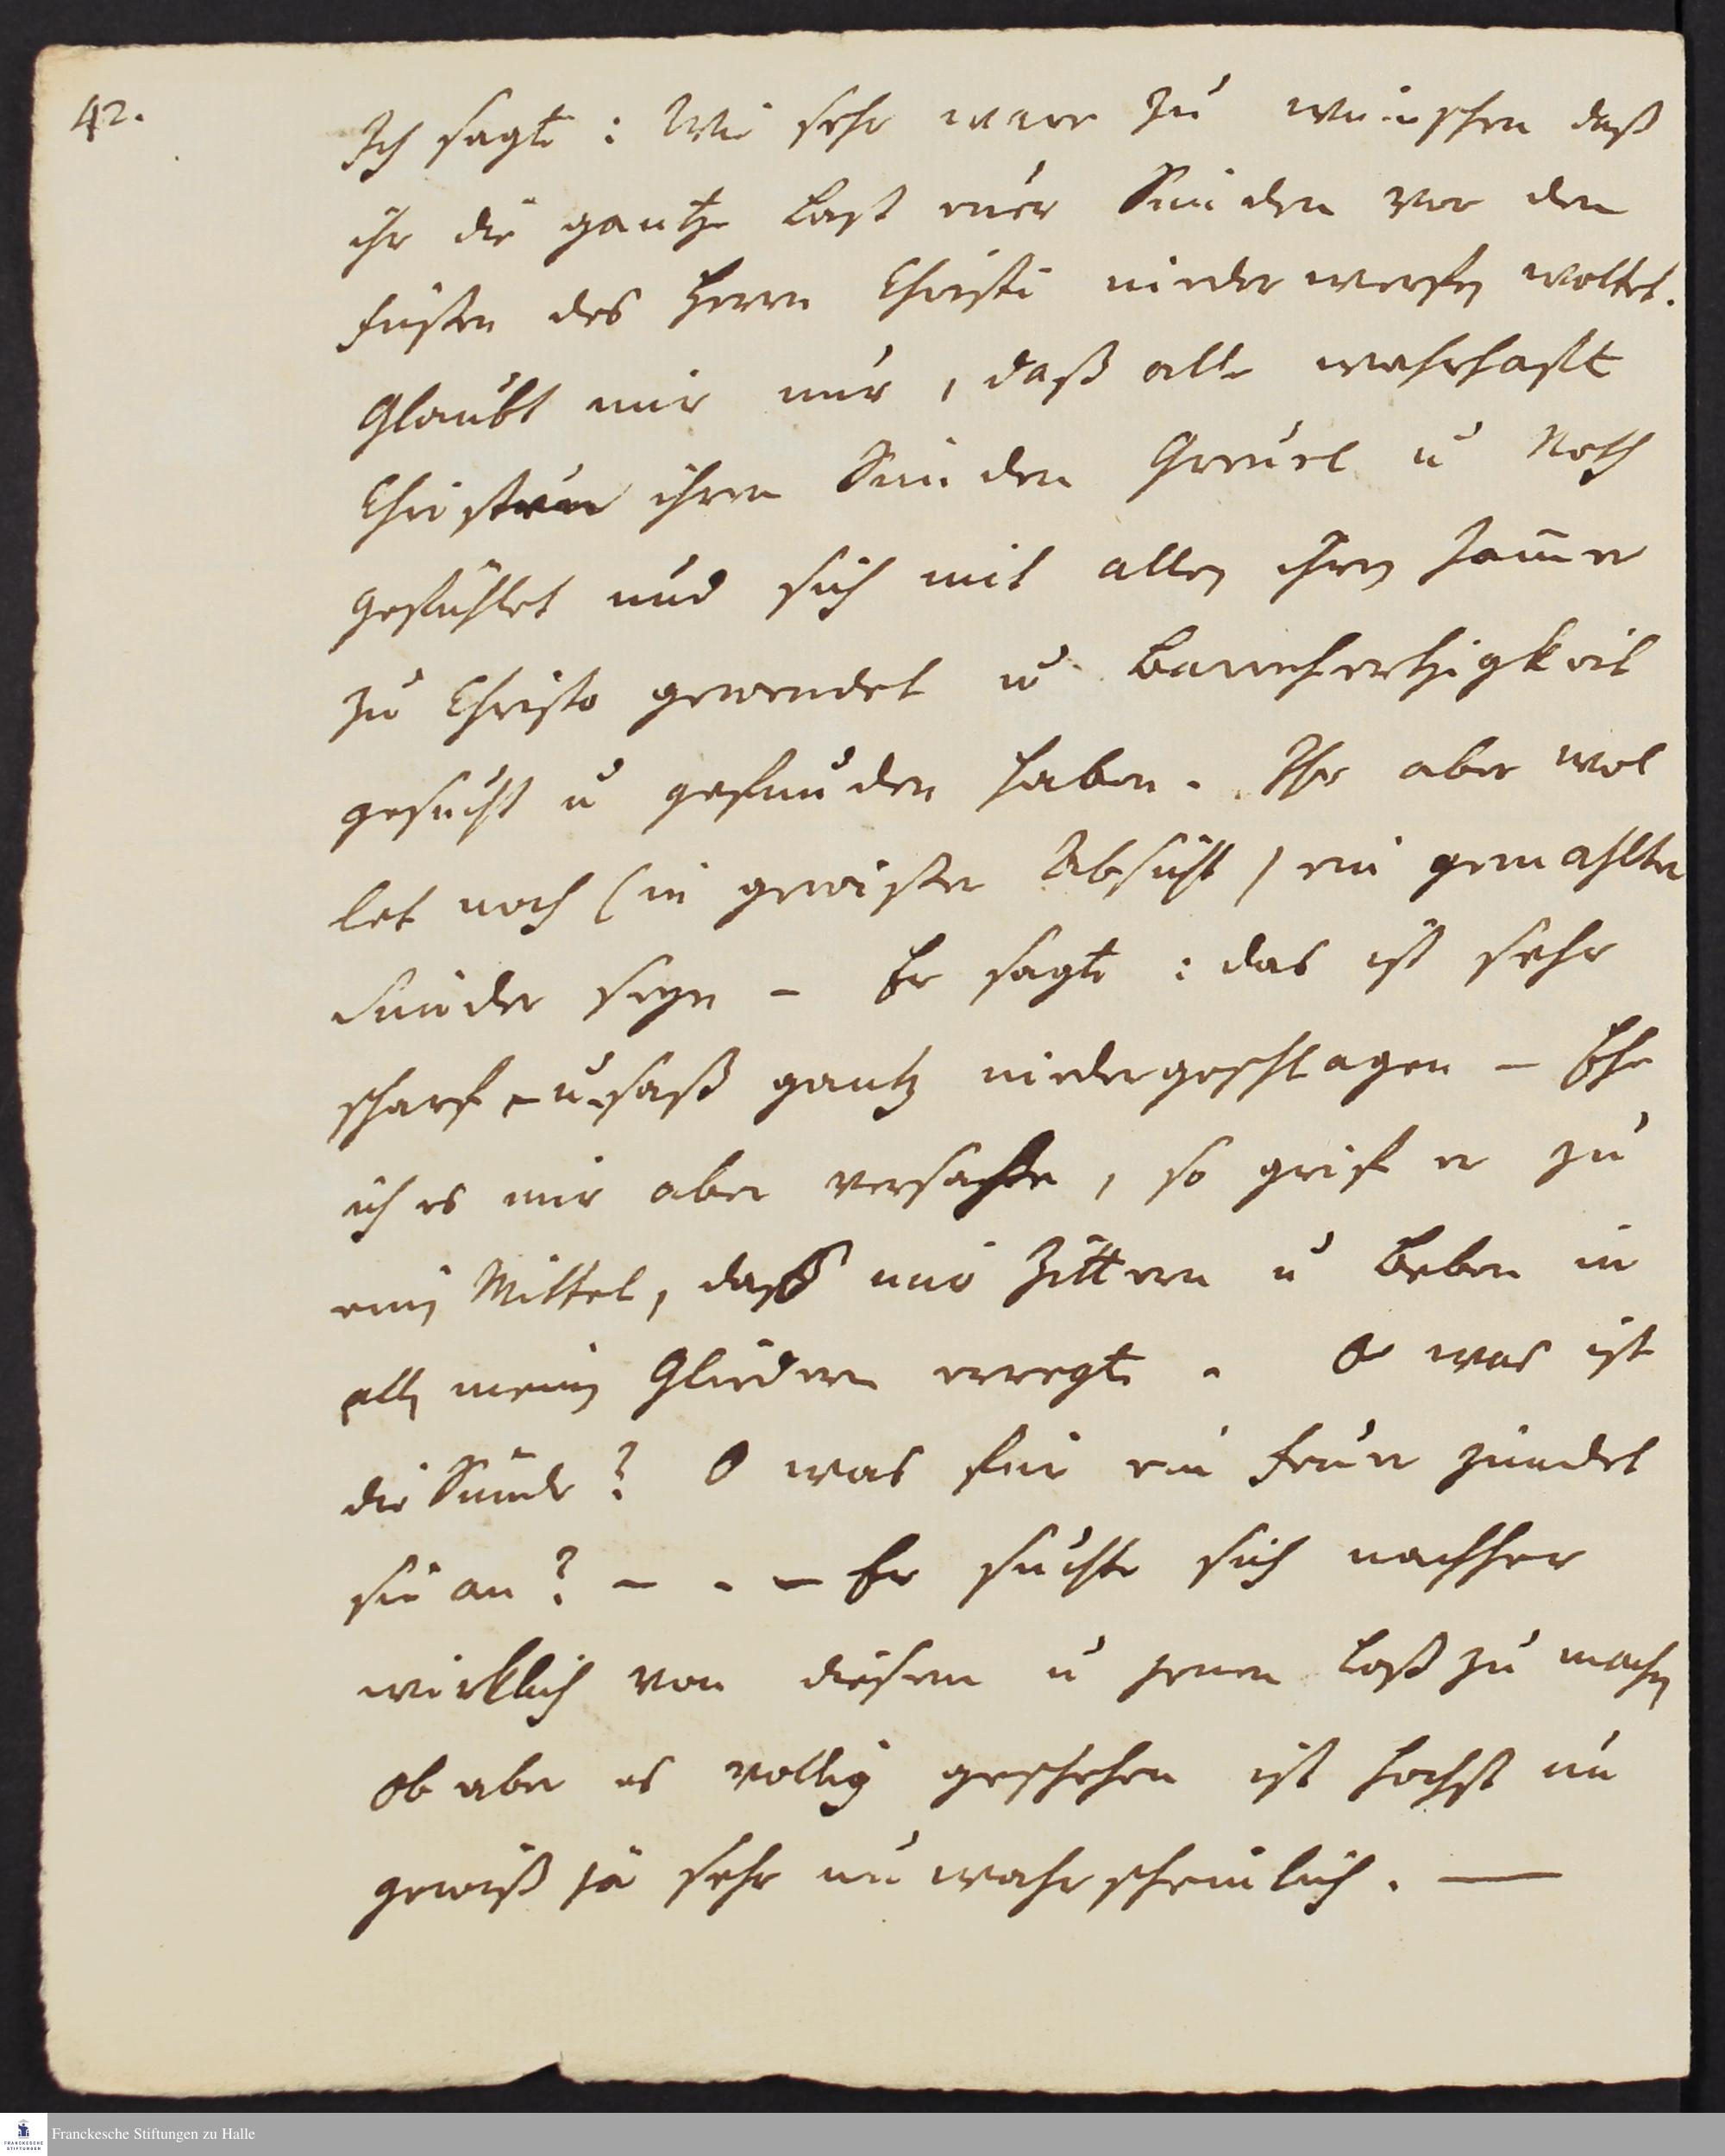 42.
Ich sagte: Wie sehr ware zu wünschen daß
ihr die gantze Last eurer Sünden vor den
Füßen des Herrn Christi niederwerfen woltet.
Glaubt mir nur, daß alle wahrhafte
Christen ihren Sünden Greuel u Noth
gefühlet und sich mit allen ihren Jam̅er
zu Christo gewendet u Barmhertzigkeit
gesucht u gefunden haben. Ihr aber wol
let noch (in gewißer Absicht) ein gemahlter
Sünder seyn - Er sagte: das ist sehr
scharf - u. saß gantz niedergeschlagen - Ehe
ich es mir aber versahe, so grif er zu
einen Mittel, daß mir Zittern u Beben in
allen meinen Gliedern erregte. O was ist
die Sünde? O was für ein Feuer zündet
sie an? - - - Er suchte sich nachher
wirklich von diesem u jenem Loß zu machen
Ob aber es vollig geschehen ist hochst un
gewiß ja sehr unwahrscheinlich. —
Franckesche Stiftungen zu Halle
FRANCKESCHE
STIFTUNGEN